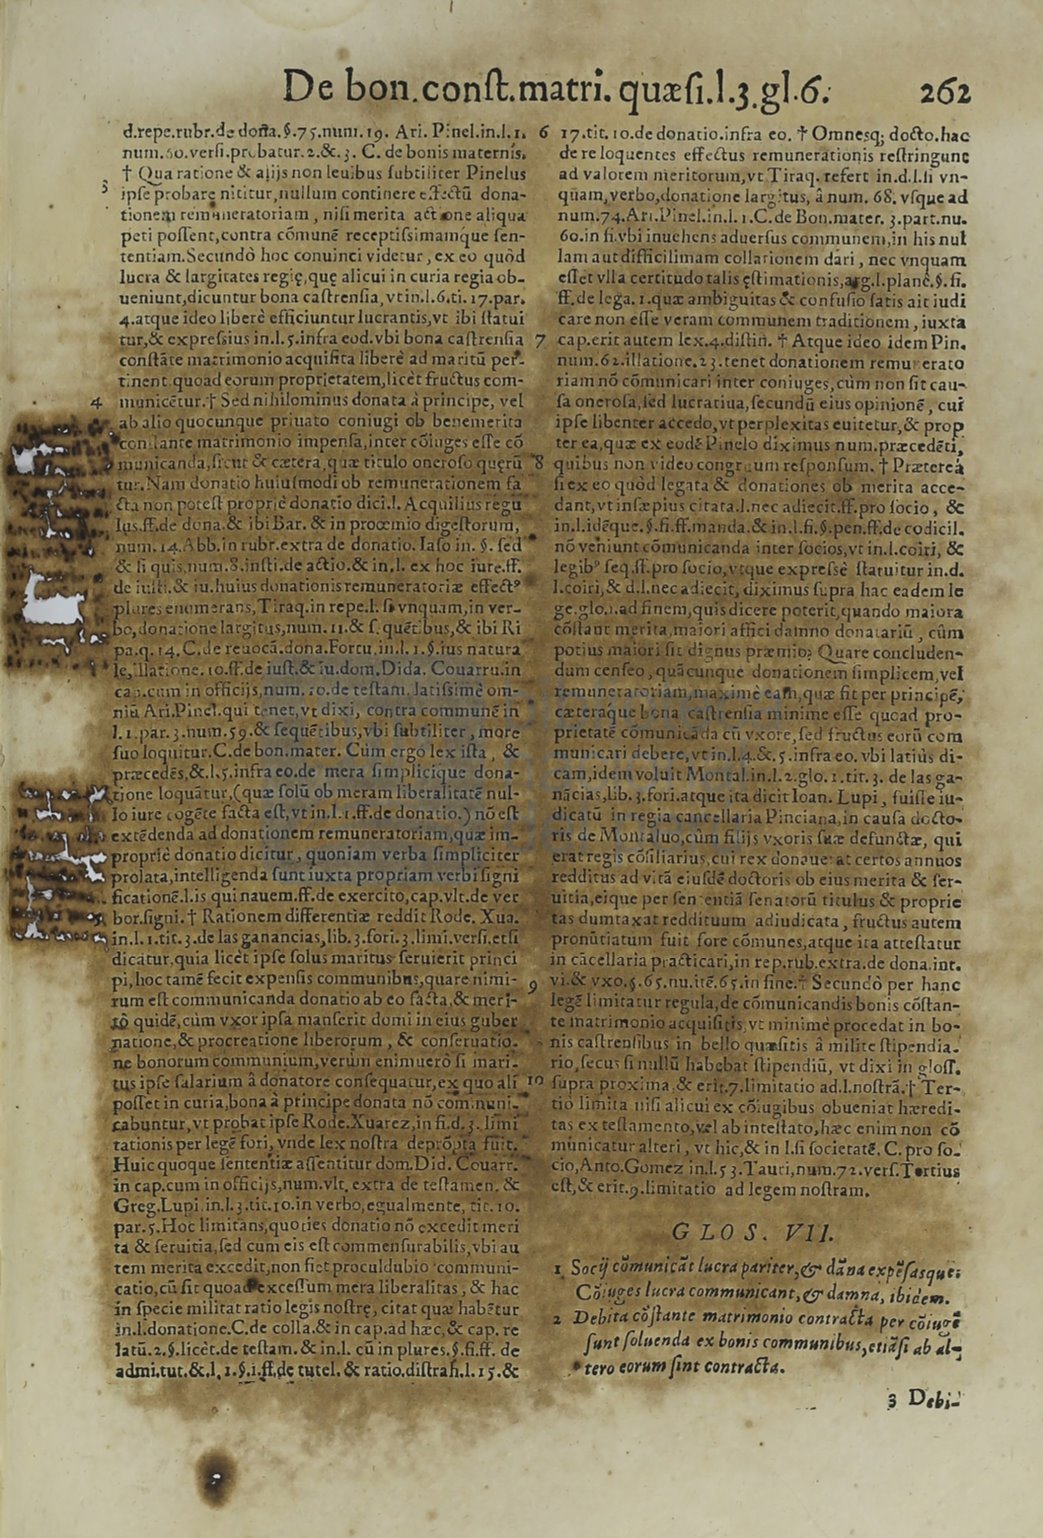 De bon.conſt.matri.quæſi.l.3.gl.6. 262
d.repe.rubr.de dona.§.75.num.19. Ari. Pinel.in.l.1.
num.60.verſi.probatur.2.&.3. C. de bonis maternis.
3 † Qua ratione & alijs non leuibus ſubtiliter Pinelus
ipſe probare nititur,nullum continere effectũ dona-
tionem remuneratoriam, niſi merita actione aliqua
peti poſſent,contra cõmunẽ receptiſsimamque ſen-
tentiam.Secundò hoc conuinci videtur, ex eo quòd
lucra & largitates regię,quę alicui in curia regia ob-
ueniunt,dicuntur bona caſtrenſia,vt in.l.6.ti. 17.par.
4.atque ideo liberè efficiuntur lucrantis,vt ibi ſtatui
tur,& expreſsius in.l.5.infra eod.vbi bona caſtrenſia
conſtãte matrimonio acquiſita liberè ad maritũ per-
tinent quoad eorum proprietatem,licèt fructus com-
4 municẽtur.† Sed nihilominus donata à principe, vel
ab alio quocunque priuato coniugi ob benemerita
conſtante matrimonio impenſa,inter cõiuges eſſe cõ
municanda,ſicut & cætera,quæ titulo oneroſo quęrũ
tur.Nam donatio huiuſmodi ob remunerationem fa
cta non poteſt propriè donatio dici.l. Acquilius regũ
lus.ff.de dona.& ibi Bar. & in prooemio digeſtorum,
num.14.Abb.in rubr.extra de donatio.Iaſo in. §. ſed
& ſi quis,num.8.inſti.de actio.& in.l. ex hoc iure.ff.
de iuſti.& iu.huius donationis remuneratoriæ effectꝰ
plures enumerans,Tiraq.in repe.l. ſi vnquam,in ver-
bo,donatione largitus,num. 11.& ſ. quẽtibus,& ibi Ri
pa.q. 14.C.de reuocã.dona.Fortu.in.l.1.§.ius natura
le,illatione. 10.ff.de iuſt.& iu.dom.Dida. Couarru.in
cap.cum in officijs,num.10.de teſtam.latiſsimè om-
niũ Ari.Pinel.qui tenet,vt dixi, contra communẽ in
l.1.par.3.num.59.& ſequẽtibus,vbi ſubtiliter, more
ſuo loquitur.C.de bon.mater. Cùm ergò lex iſta, &
præcedẽs,&.l.5.infra eo.de mera ſimplicique dona-
tione loquatur,(quæ ſolũ ob meram liberalitatẽ nul-
lo iure cogẽte facta eſt,vt in.l.1.ff.de donatio.) nõ eſt
extẽdenda ad donationem remuneratoriam,quæ im-
propriè donatio dicitur, quoniam verba ſimpliciter
prolata,intelligenda ſunt iuxta propriam verbi ſigni
ficationẽ.l.is qui nauem.ff.de exercito,cap.vlt.de ver
5 bor.ſigni.† Rationem differentiæ reddit Rode. Xua.
in.l.1.tit.3.de las ganancias,lib.3.fori.3.limi.verſi.etſi
dicatur,quia licèt ipſe ſolus maritus ſeruierit princi
pi,hoc tamẽ fecit expenſis communibus,quare nimi-
rum eſt communicanda donatio ab eo facta,& meri-
tò quidẽ,cùm vxor ipſa manſerit domi in eius guber
natione,& procreatione liberorum, & conſeruatio-
ne bonorum communium,verùm enimuerò ſi mari-
tus ipſe ſalarium â donatore conſequatur,ex quo ali
poſſet in curia,bona à principe donata nõ communi-
cabuntur,vt probat ipſe Rode.Xuarez,in fi.d.3.limi
tationis per legẽ fori,vnde lex noſtra deprõpta fuit.
Huic quoque ſententiæ aſſentitur dom.Did. Couarr.
in cap.cum in officijs,num.vlt. extra de teſtamen. &
Greg.Lupi.in.l.3.tit.10.in verbo,egualmente, tit.10.
par.5.Hoc limitans,quoties donatio nõ excedit meri
ta & ſeruitia,ſed cum eis eſt commenſurabilis,vbi au
tem merita excedit,non fiet proculdubio communi-
catio,cũ ſit quoad exceſſum mera liberalitas, & hac
in ſpecie militat ratio legis noſtrę, citat quæ habẽtur
in.l.donatione.C.de colla.& in cap.ad hæc,& cap. re
latũ.2.§.licèt.de teſtam.& in.l. cũ in plures.§.fi.ff. de
admi.tut.&.l.1.§.i.ff.de tutel.& ratio.diſtrah.l.15.&
6 17.tit.10.de donatio.infra eo. † Omnesq; docto.hac
de re loquentes effectus remunerationis reſtringunt
ad valorem meritorum,vt Tiraq. refert in.d.l.ſi vn-
quam,verbo,donatione largitus, â num. 68. vſque ad
num.74.Ari.Pinel.in.l.1.C.de Bon.mater. 3.part.nu.
60.in fi.vbi inuehens aduerſus communem,in his nul
lam aut difficilimam collationem dari, nec vnquam
eſſet vlla certitudo talis ęſtimationis,arg.l.planè.§.ſi.
ff.de lega.1.quæ ambiguitas & confuſio ſatis ait iudi
care non eſſe veram communem traditionem, iuxta
7 cap.erit autem lex.4.diſtin. † Atque ideo idem Pin.
num.62.illatione.23.tenet donationem remunerato
riam nõ cõmunicari inter coniuges,cùm non ſit cau-
ſa oneroſa,ſed lucratiua,ſecundũ eius opinionẽ, cui
ipſe libenter accedo,vt perplexitas euitetur,& prop
ter ea,quæ ex eodẽ Pinelo diximus num.præcedẽti,
8 quibus non video congruum reſponſum. † Præterea
ſi ex eo quòd legata & donationes ob merita acce-
dant,vt in ſæpius citata.l.nec adiecit.ff.pro ſocio, &
in.l.idẽque.§.fi.ff.manda.& in.l.fi.§.pen.ff.de codicil.
nõ veniunt cõmunicanda inter ſocios,vt in.l.coiri, &
legibꝰ ſeq.ff.pro ſocio,vtque expreſsè ſtatuitur in.d.
l.coiri,& d.l.nec adiecit, diximus ſupra hac eadem le
ge.glo.1.ad finem,quis dicere poterit,quando maiora
cõſtant merita,maiori affici damno donatariũ, cùm
potius maiori ſit dignus præmio: Quare concluden-
dum cenſeo, quãcunque donationem ſimplicem,vel
remuneratoriam,maximè eam,quæ fit per principẽ,
cæteraque bona caſtrenſia minime eſſe quoad pro-
prietatẽ cõmunicãda cũ vxore,ſed fructus eorũ com
municari debere,vt in.l.4.&.5.infra eo. vbi latiùs di-
cam,idem voluit Montal.in.l.2.glo.1.tit.3. de las ga-
nãcias,lib.3.fori.atque ita dicit Ioan. Lupi, fuiſſe iu-
dicatũ in regia cancellaria Pinciana,in cauſa docto-
ris de Montaluo,cùm filijs vxoris ſuæ defunctæ, qui
erat regis cõſiliarius,cui rex donauerat certos annuos
redditus ad vitã eiuſdẽ doctoris ob eius merita & ſer-
uitia,eique per ſententiã ſenatorũ titulus & proprie
tas dumtaxat reddituum adiudicata, fructus autem
pronũtiatum fuit fore cõmunes,atque ita atteſtatur
in cãcellaria practicari,in rep.rub.extra.de dona.int.
9 vi.& vxo.§.65.nu.itẽ.65.in fine.† Secundò per hanc
legẽ limitatur regula,de cõmunicandis bonis cõſtan-
te matrimonio acquiſitis,vt minimè procedat in bo-
nis caſtrenſibus in bello quæſitis â milite ſtipendia-
rio,ſecus ſi nullũ habebat ſtipendiũ, vt dixi in gloſſ.
10 ſupra proxima,& erit.7.limitatio ad.l.noſtrã.† Ter-
tiò limita niſi alicui ex cõiugibus obueniat hæredi-
tas ex teſtamento,vel ab inteſtato,hæc enim non cõ
municatur alteri, vt hic,& in l.ſi ſocietatẽ. C. pro ſo-
cio,Anto.Gomez in.l.53.Tauri,num.72.verſ.Tertius
eſt,& erit.9.limitatio ad legem noſtram.
GLOS. VII.
1 Socij cõmunicãt lucra pariter,& dãna expẽſasque:
Cõiuges lucra communicant,& damna, ibidem.
2 Debita cõſtante matrimonio contracta per cõiugẽ
ſunt ſoluenda ex bonis communibus,etiãſi ab al-
tero eorum ſint contracta.
3 Debi-